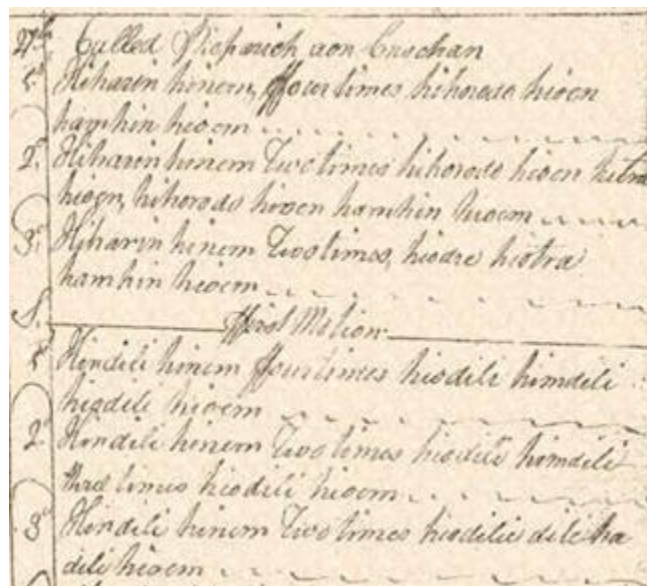 27th Called Piobarich aon Cnochan
1st Hiharin hinem, ffour times hihorodo hieen
hamhin hieem
2d Hiharin hinem Two times hihorodo hieen hetra
hieen, hihorodo hieen hamhin hieem
3d Hiharin hinem Two times, hiodre hiotra
hamhin hieem
S. ffirst Motion
1st Hindili hinem ffour times hiodili himdili
hiodili hieem
2d Hindili hinem Two times hiodili himdili
three times hiodili hieem
3d Hindili hinem Two times hiodili dili ha
dili hieem